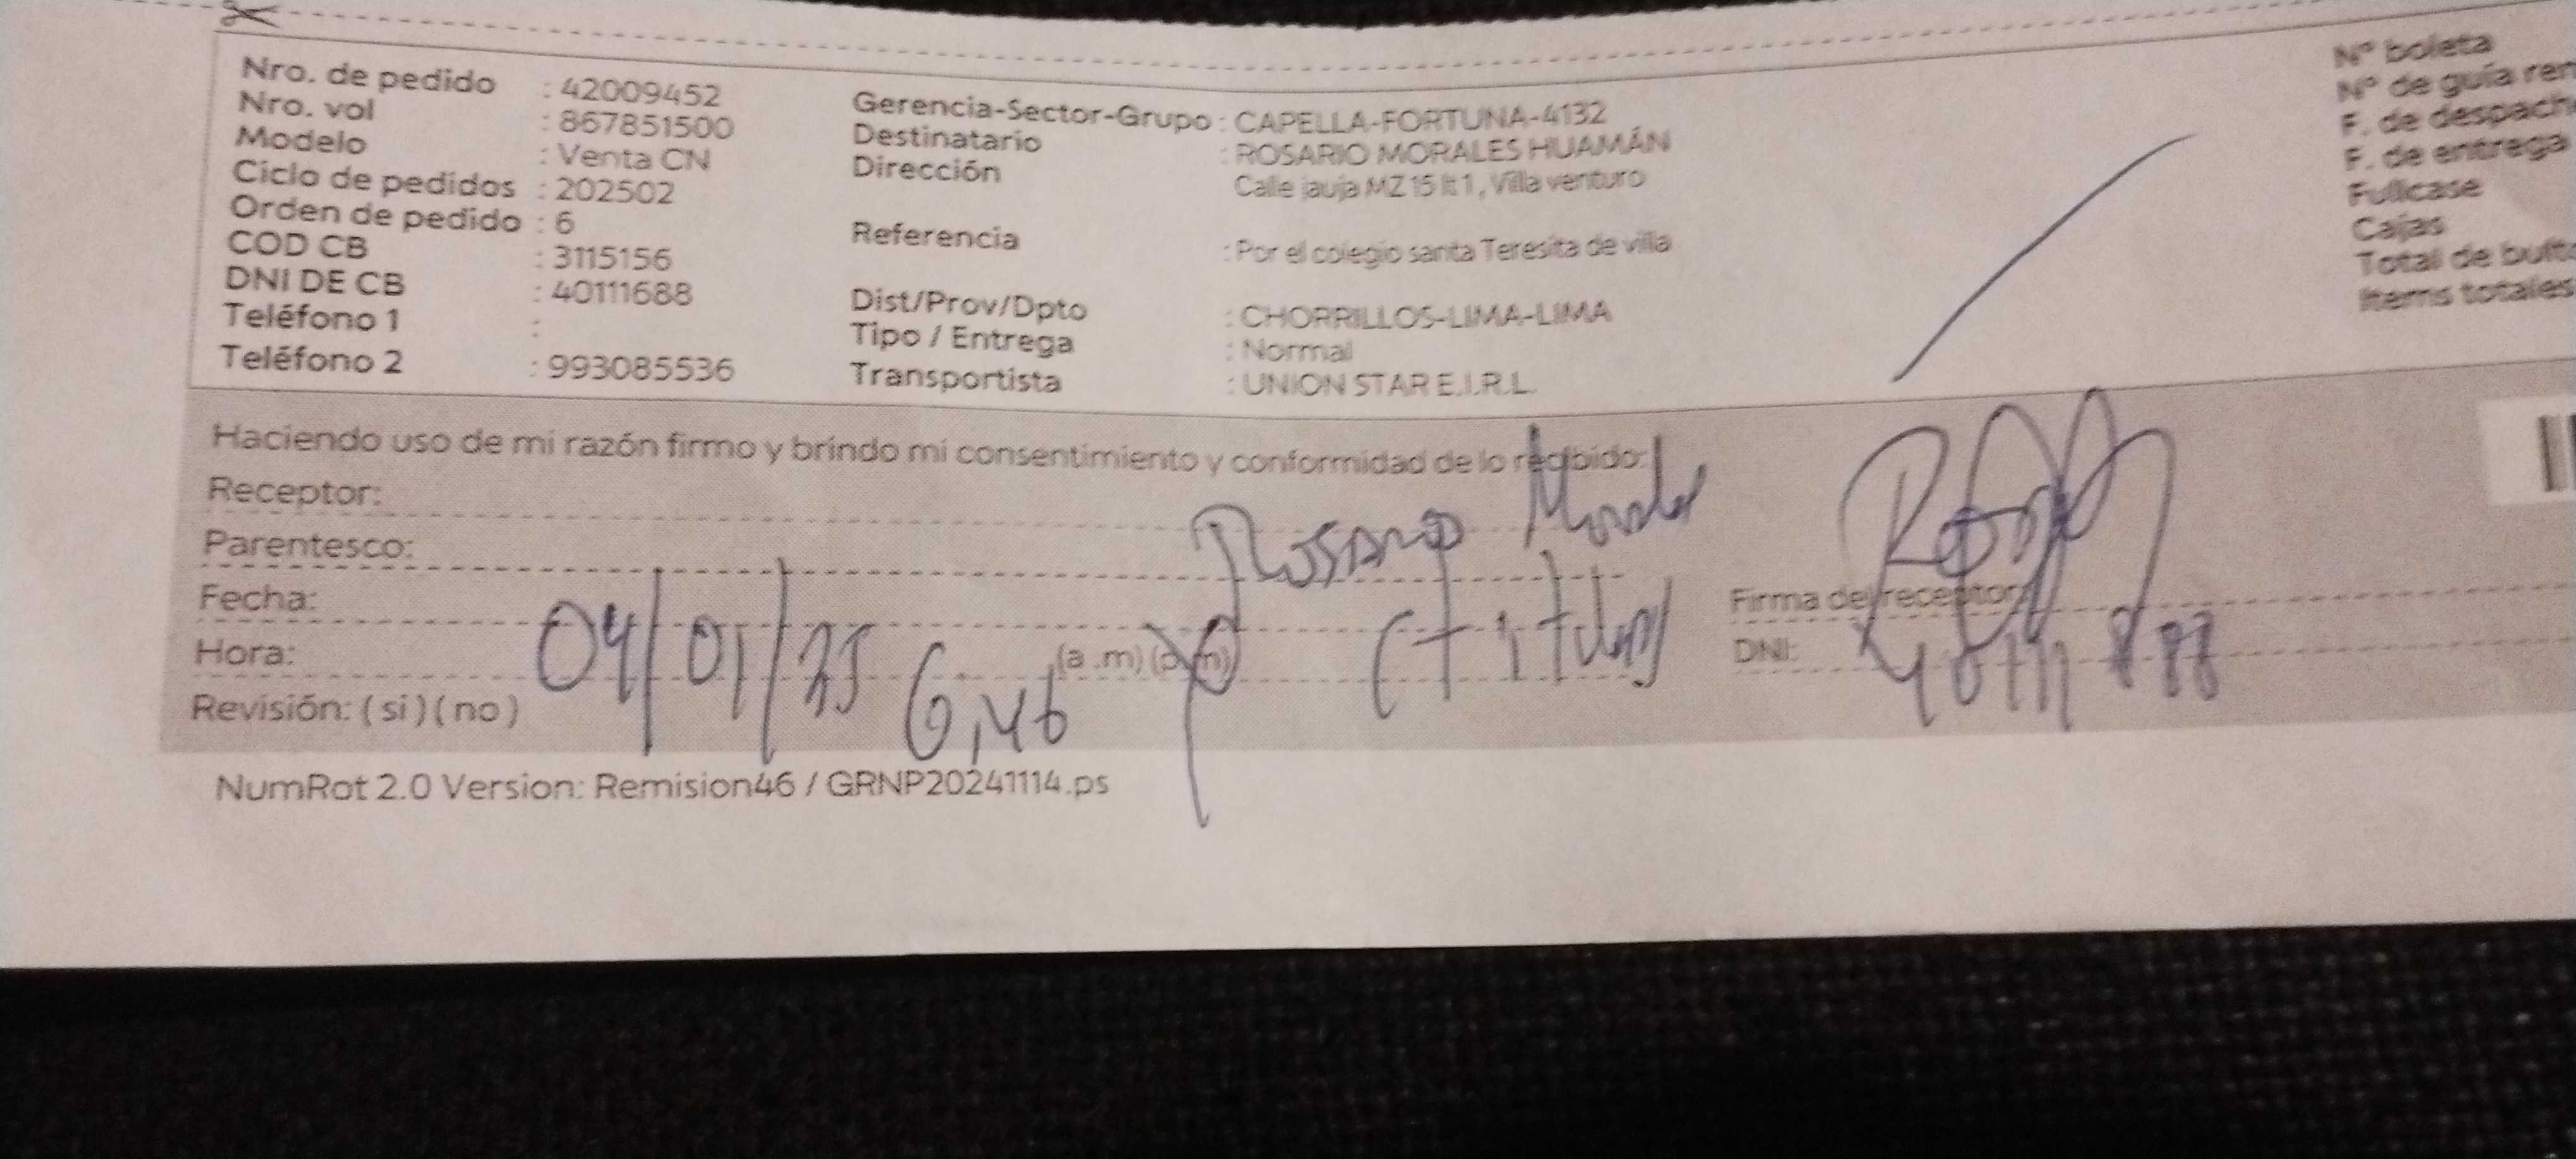 Nro. de pedido : 42009452
Nro. vol : 867851500
Modelo : Venta CN
Ciclo de pedidos : 202502
Orden de pedido : 6
COD CB : 3115156
DNI DE CB : 40111688
Teléfono 1 :
Teléfono 2 : 993085536
Gerencia-Sector-Grupo : CAPELLA-FORTUNA-4132
Destinatario : ROSARIO MORALES HUAMÁN
Dirección Calle jauja MZ 15 lt 1, Villa venturo
Referencia : Por el colegio santa Teresita de villa
Dist/Prov/Dpto : CHORRILLOS-LIMA-LIMA
Tipo / Entrega : Normal
Transportista : UNION STAR E.I.R.L.
Nº boleta
Nº de guía rem
F. de despach
F. de entrega
Fullcase
Cajas
Total de bulto
Items totales
Haciendo uso de mi razón firmo y brindo mi consentimiento y conformidad de lo recibido:
Receptor: Rosario Morales
Parentesco: (titular)
Fecha: 04/01/25
Hora: 6,46 (a .m) (p.m)
Revisión: ( si ) ( no )
Firma del receptor
DNI:
NumRot 2.0 Version: Remision46 / GRNP20241114.ps